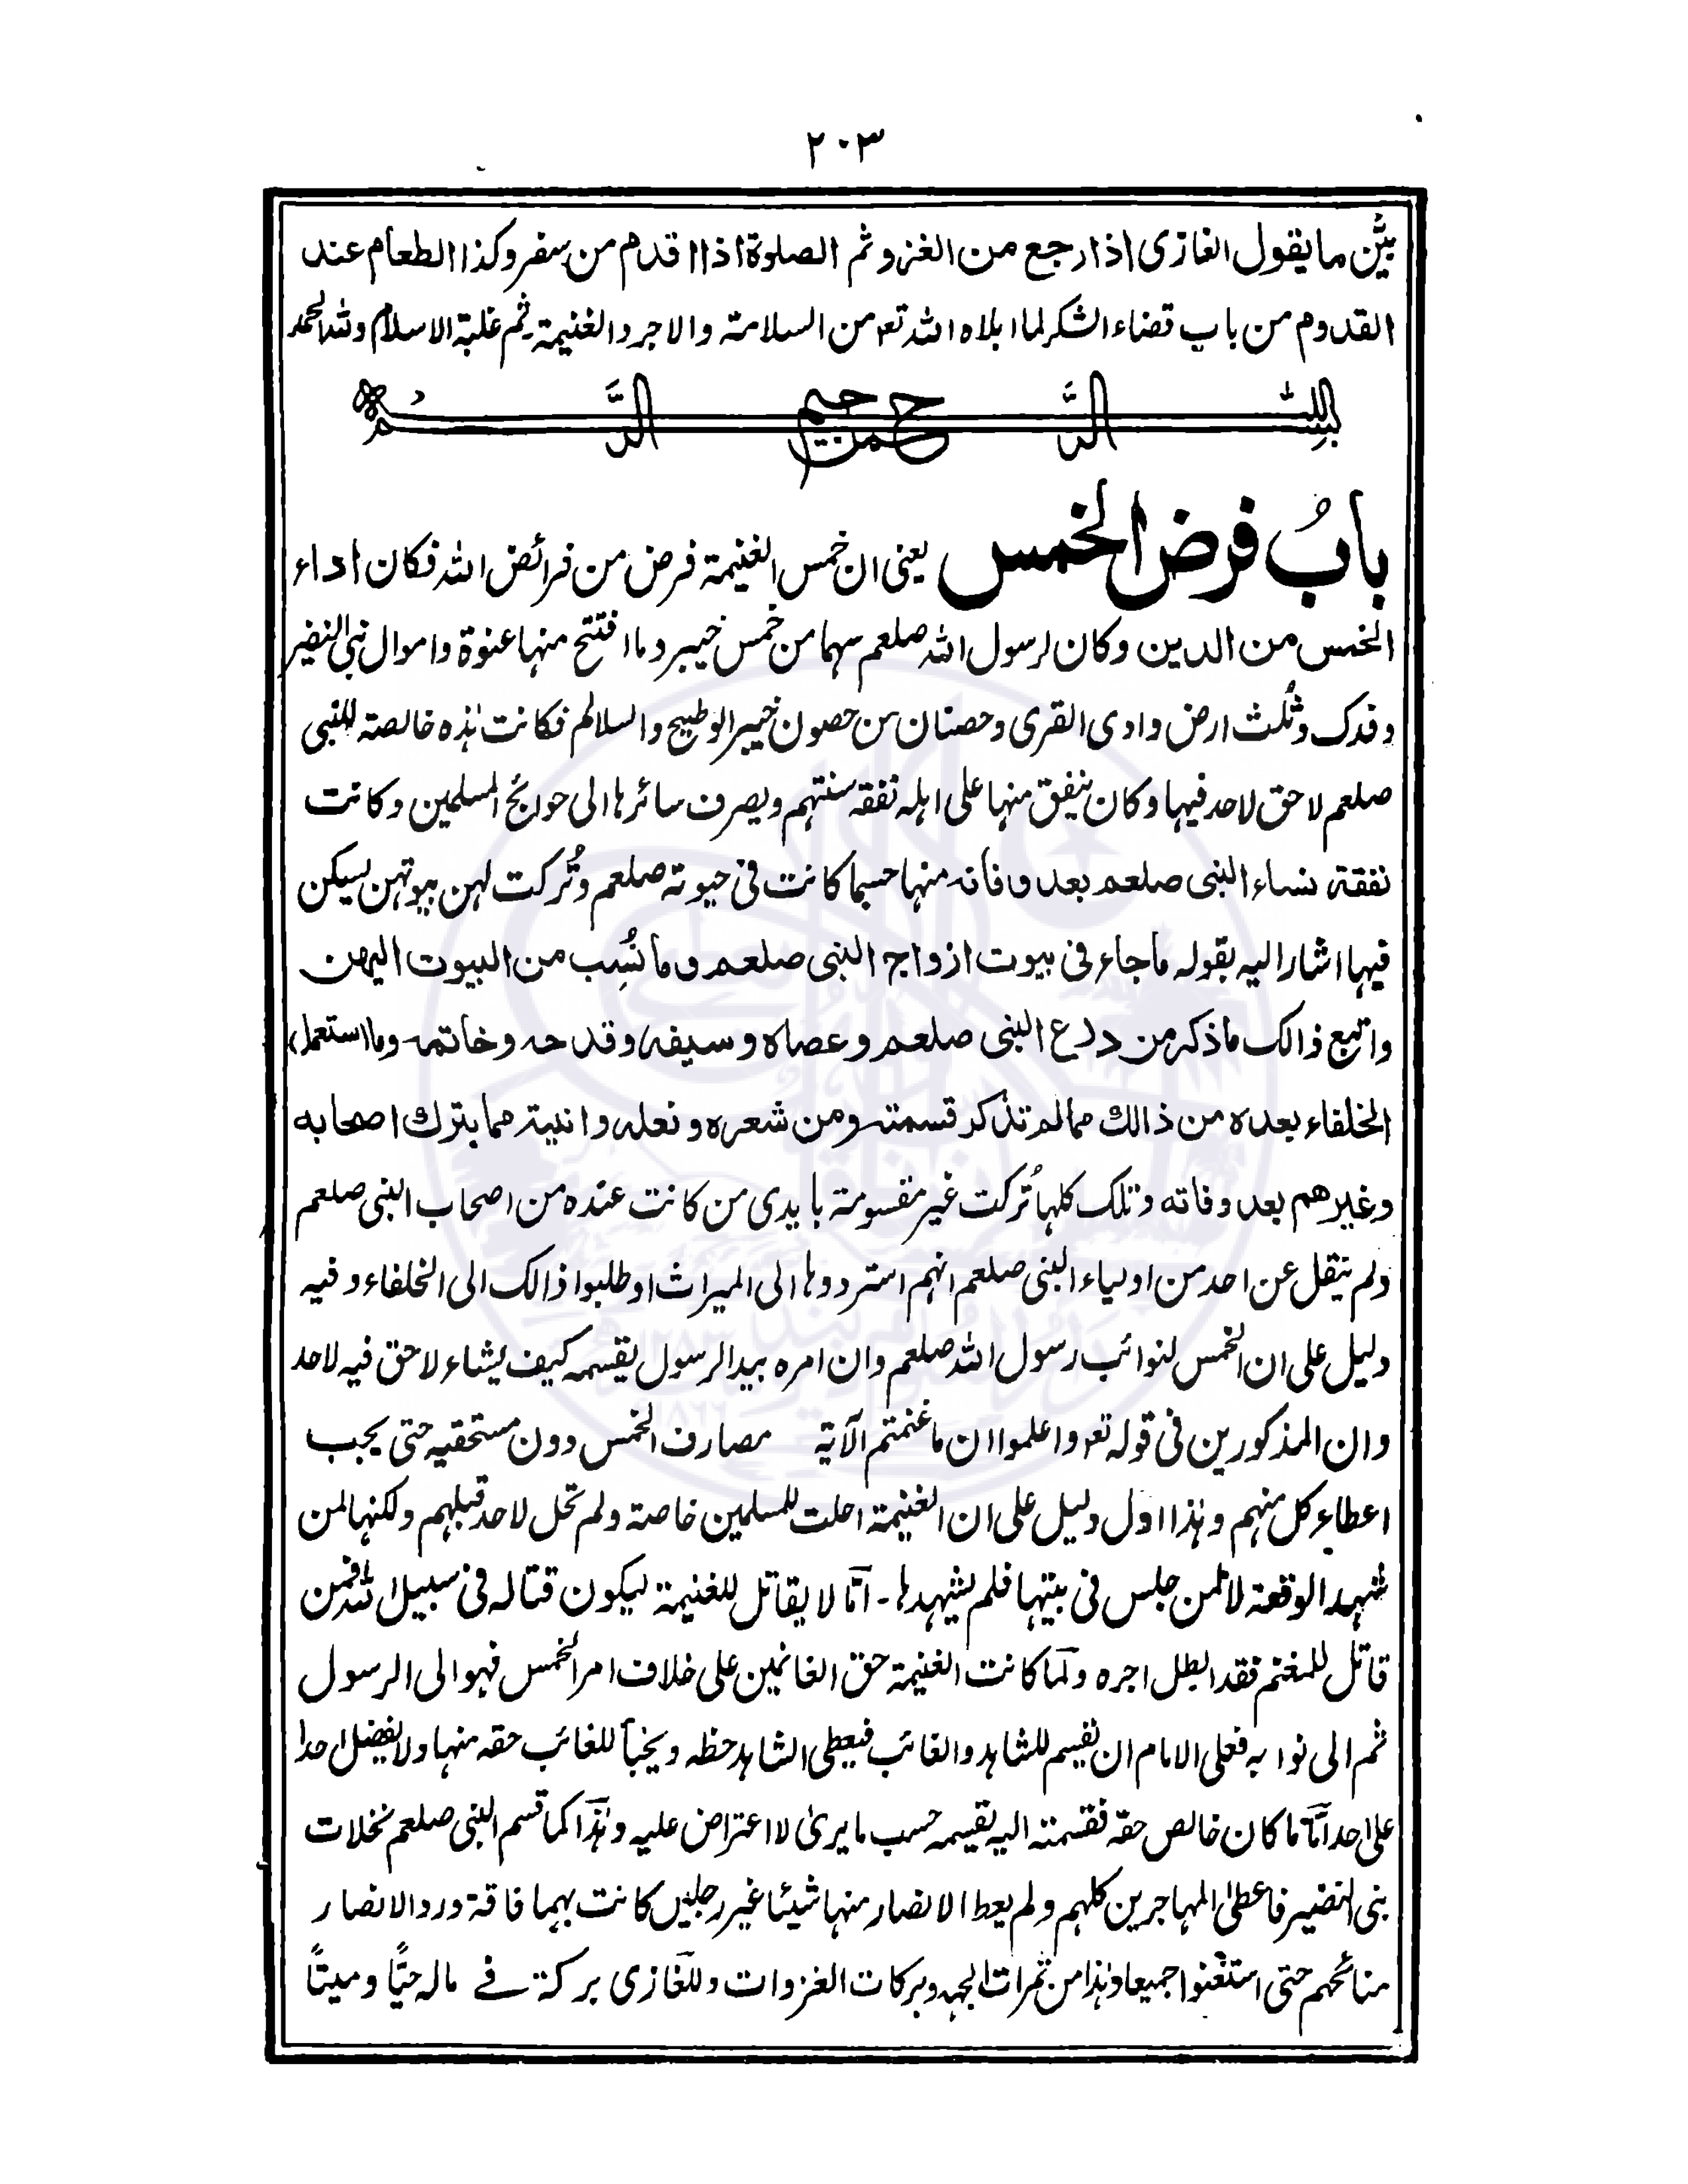 ٢٠٣
بيَّن ما يقول الغازى اذا رجع من الغزو ثم الصلوة اذا قدم من سفر وكذا الطعام عند
القدوم من باب قضاء الشكر لما ابلاه الله تعـ من السلامة والاجر والغنيمة ثم غلبة الاسلام ولله الحمد
بسم الله الرَّحمن الرَّحيم
بابُ فرض الخمس يعنى ان خمس الغنيمة فرض من فرائض الله فكان اداء
الخمس من الدين وكان لرسول الله صلعم سهما من خمس خيبر وما افتتح منها عنوة واموال بنى النضير
وفدك وثُلث ارض وادى القرى وحصنان من حصون خيبر الوطيح والسلالم فكانت هذه خالصة للنبى
صلعم لا حق لاحد فيها وكان ينفق منها على اهله نفقة سنتهم ويصرف سائرها الى حوائج المسلمين وكانت
نفقة نساء النبى صلعم بعد وفاته منها حسبما كانت فى حيوته صلعم وتُركت لهن بيوتهن ليسكن
فيها اشار اليه بقوله ما جاء فى بيوت ازواج النبى صلعم وما نُسِب من البيوت اليهن
واتبع ذالك ما ذكر من درع النبى صلعم وعصاه وسيفه وقدحه وخاتمه وما استعمل
الخلفاء بعده من ذالك مما لم تذكر قسمته ومن شعره ونعله وانيية مما يترك اصحابه
وغيرهم بعد وفاته وتلك كلها تُركت غير مقسومة بايدى من كانت عنده من اصحاب النبى صلعم
ولم ينقل عن احد من اولياء النبى صلعم انهم استردوها الى الميراث او طلبوا ذالك الى الخلفاء وفيه
دليل على ان الخمس لنوائب رسول الله صلعم وان امره بيد الرسول يقسمه كيف يشاء لا حق فيه لاحد
وان المذكورين فى قوله تعـ واعلموا ان ما غنمتم الآية مصارف الخمس دون مستحقيه حتى يجب
اعطاء كل منهم وهذا اول دليل على ان الغنيمة احلت للمسلمين خاصة ولم تحل لاحد قبلهم ولكنها لمن
شهد الوقعة لا لمن جلس فى بيتها فلم يشهدها - امّا لا يقاتل للغنيمة ليكون قتاله فى سبيل الله فمن
قاتل للمغنم فقد ابطل اجره ولمّا كانت الغنيمة حق الغانمين على خلاف امر الخمس فهو الى الرسول
ثم الى نوابه فعلى الامام ان يقسم للشاهد والغائب فيعطى الشاهد حظه ويخبأ للغائب حقه منها ولا يفضل احدا
على احد امّا ما كان خالص حقه فقسمته اليه يقسمه حسب ما يرىٰ لا اعتراض عليه وهذا كما قسم النبى صلعم نخلات
بنى النضير فاعطىٰ المهاجرين كلهم ولم يعط الانصار منها شيئا غير رجلين كانت بهما فاقة ورد الانصار
منائحهم حتى استغنوا جميعا وهذا من ثمرات الجهد وبركات الغزوات وللغازى بركة فے ماله حيًّا وميتًا